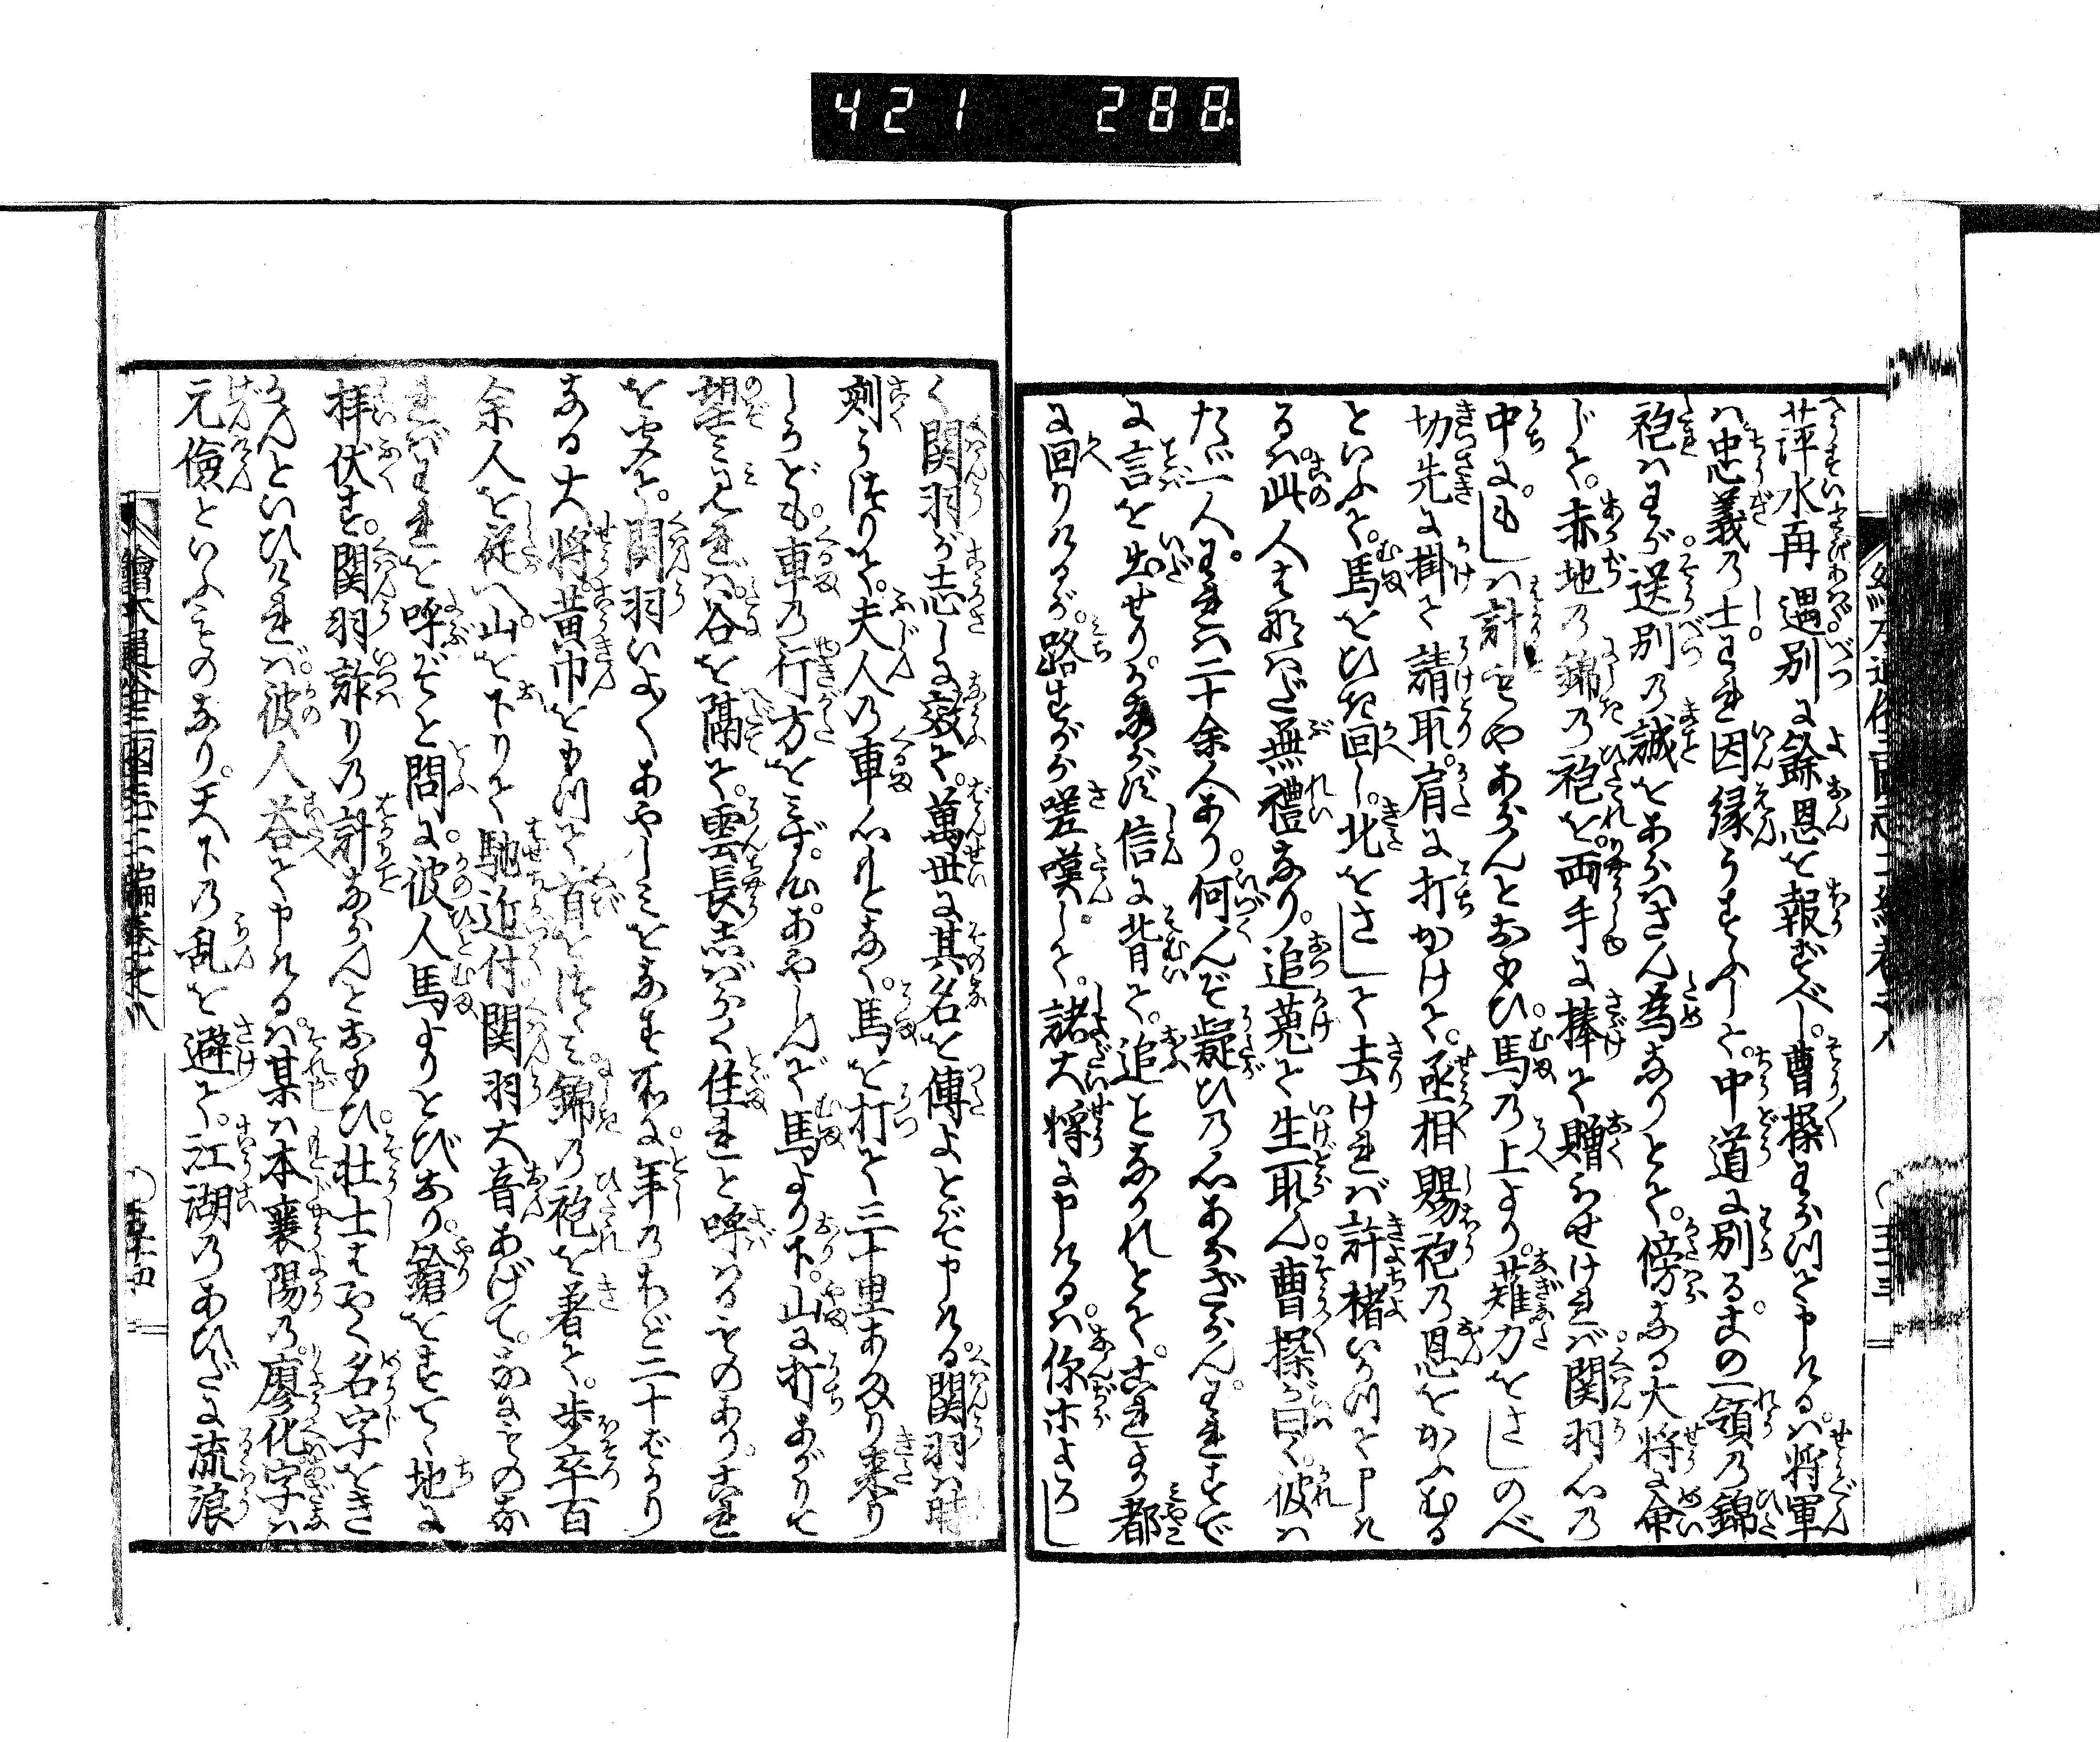 421 288.
萍水再遇別に餘恩を報ずべし。曹操わらつて申けるは。将軍
は忠義の士。われ因縁うすふして。中道に別る。この一領の錦
袍はわが送別の誠をあらはさん為なりとて。傍なる大将に命
じて。赤地の錦の袍を。両手に捧て贈らせければ関羽心の
中に。もしは計もやあらんとおもひ。馬の上より。薙刀をさしのべ
切先に掛て請取。肩に打かけて。丞相賜袍の恩をかふむる
といふて。馬をひき回し。北をさして去ければ許褚いかつて申け
るは此人は甚だ無禮なり。追蒐て生取ん。曹操が曰く。彼は
たゞ一人。われは二十余人あり。何んぞ疑ひの心あらざらん。われすで
に言を出せり。かならず信に背て。追ことなかれとて。それより都
に回りけるが。路すがら嗟嘆して。諸大将に申けるは。你等よろし
く関羽が志しに效て。萬世に其名を傳よとぞ申ける。関羽は時
刻うつりて。夫人の車心もとなく。馬を打て三十里あまり来り
しかども。車の行方をみず。心あやしんで馬より下。山に打あがりて
望み見れば谷を隔て。雲長しばらく住れと呼はるものあり。これ
を聞て。関羽いよ〳〵あやしみをなす所に。年のほど二十ばかり
なる大将。黄巾をもつて首をつゝみ。錦の袍を着て。歩卒百
余人を従へ山を下りて馳近付関羽大音あげて。なにものな
ればわれを呼ぞと問に。彼人馬よりとびおり。鎗をすてゝ地に
拝伏す。関羽詐りの計ならんとおもひ。壮士はやく名字をき
かんといひければ。彼人荅て申けるは某は本襄陽の。廖化字は
元儉といふものなり。天下の乱を避て。江湖のあひだに流浪
繪本通俗三國志二編巻之八